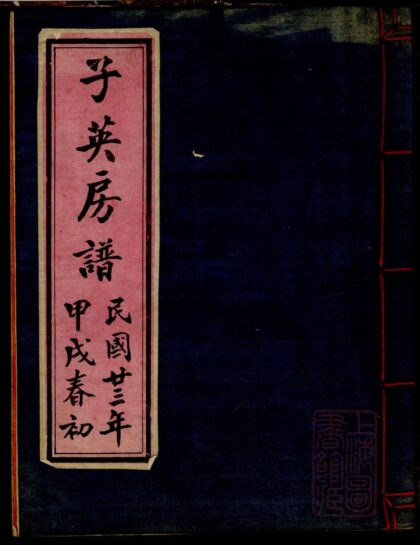 子英房譜
民國廿三年
甲戌春初
上海圖
書館藏